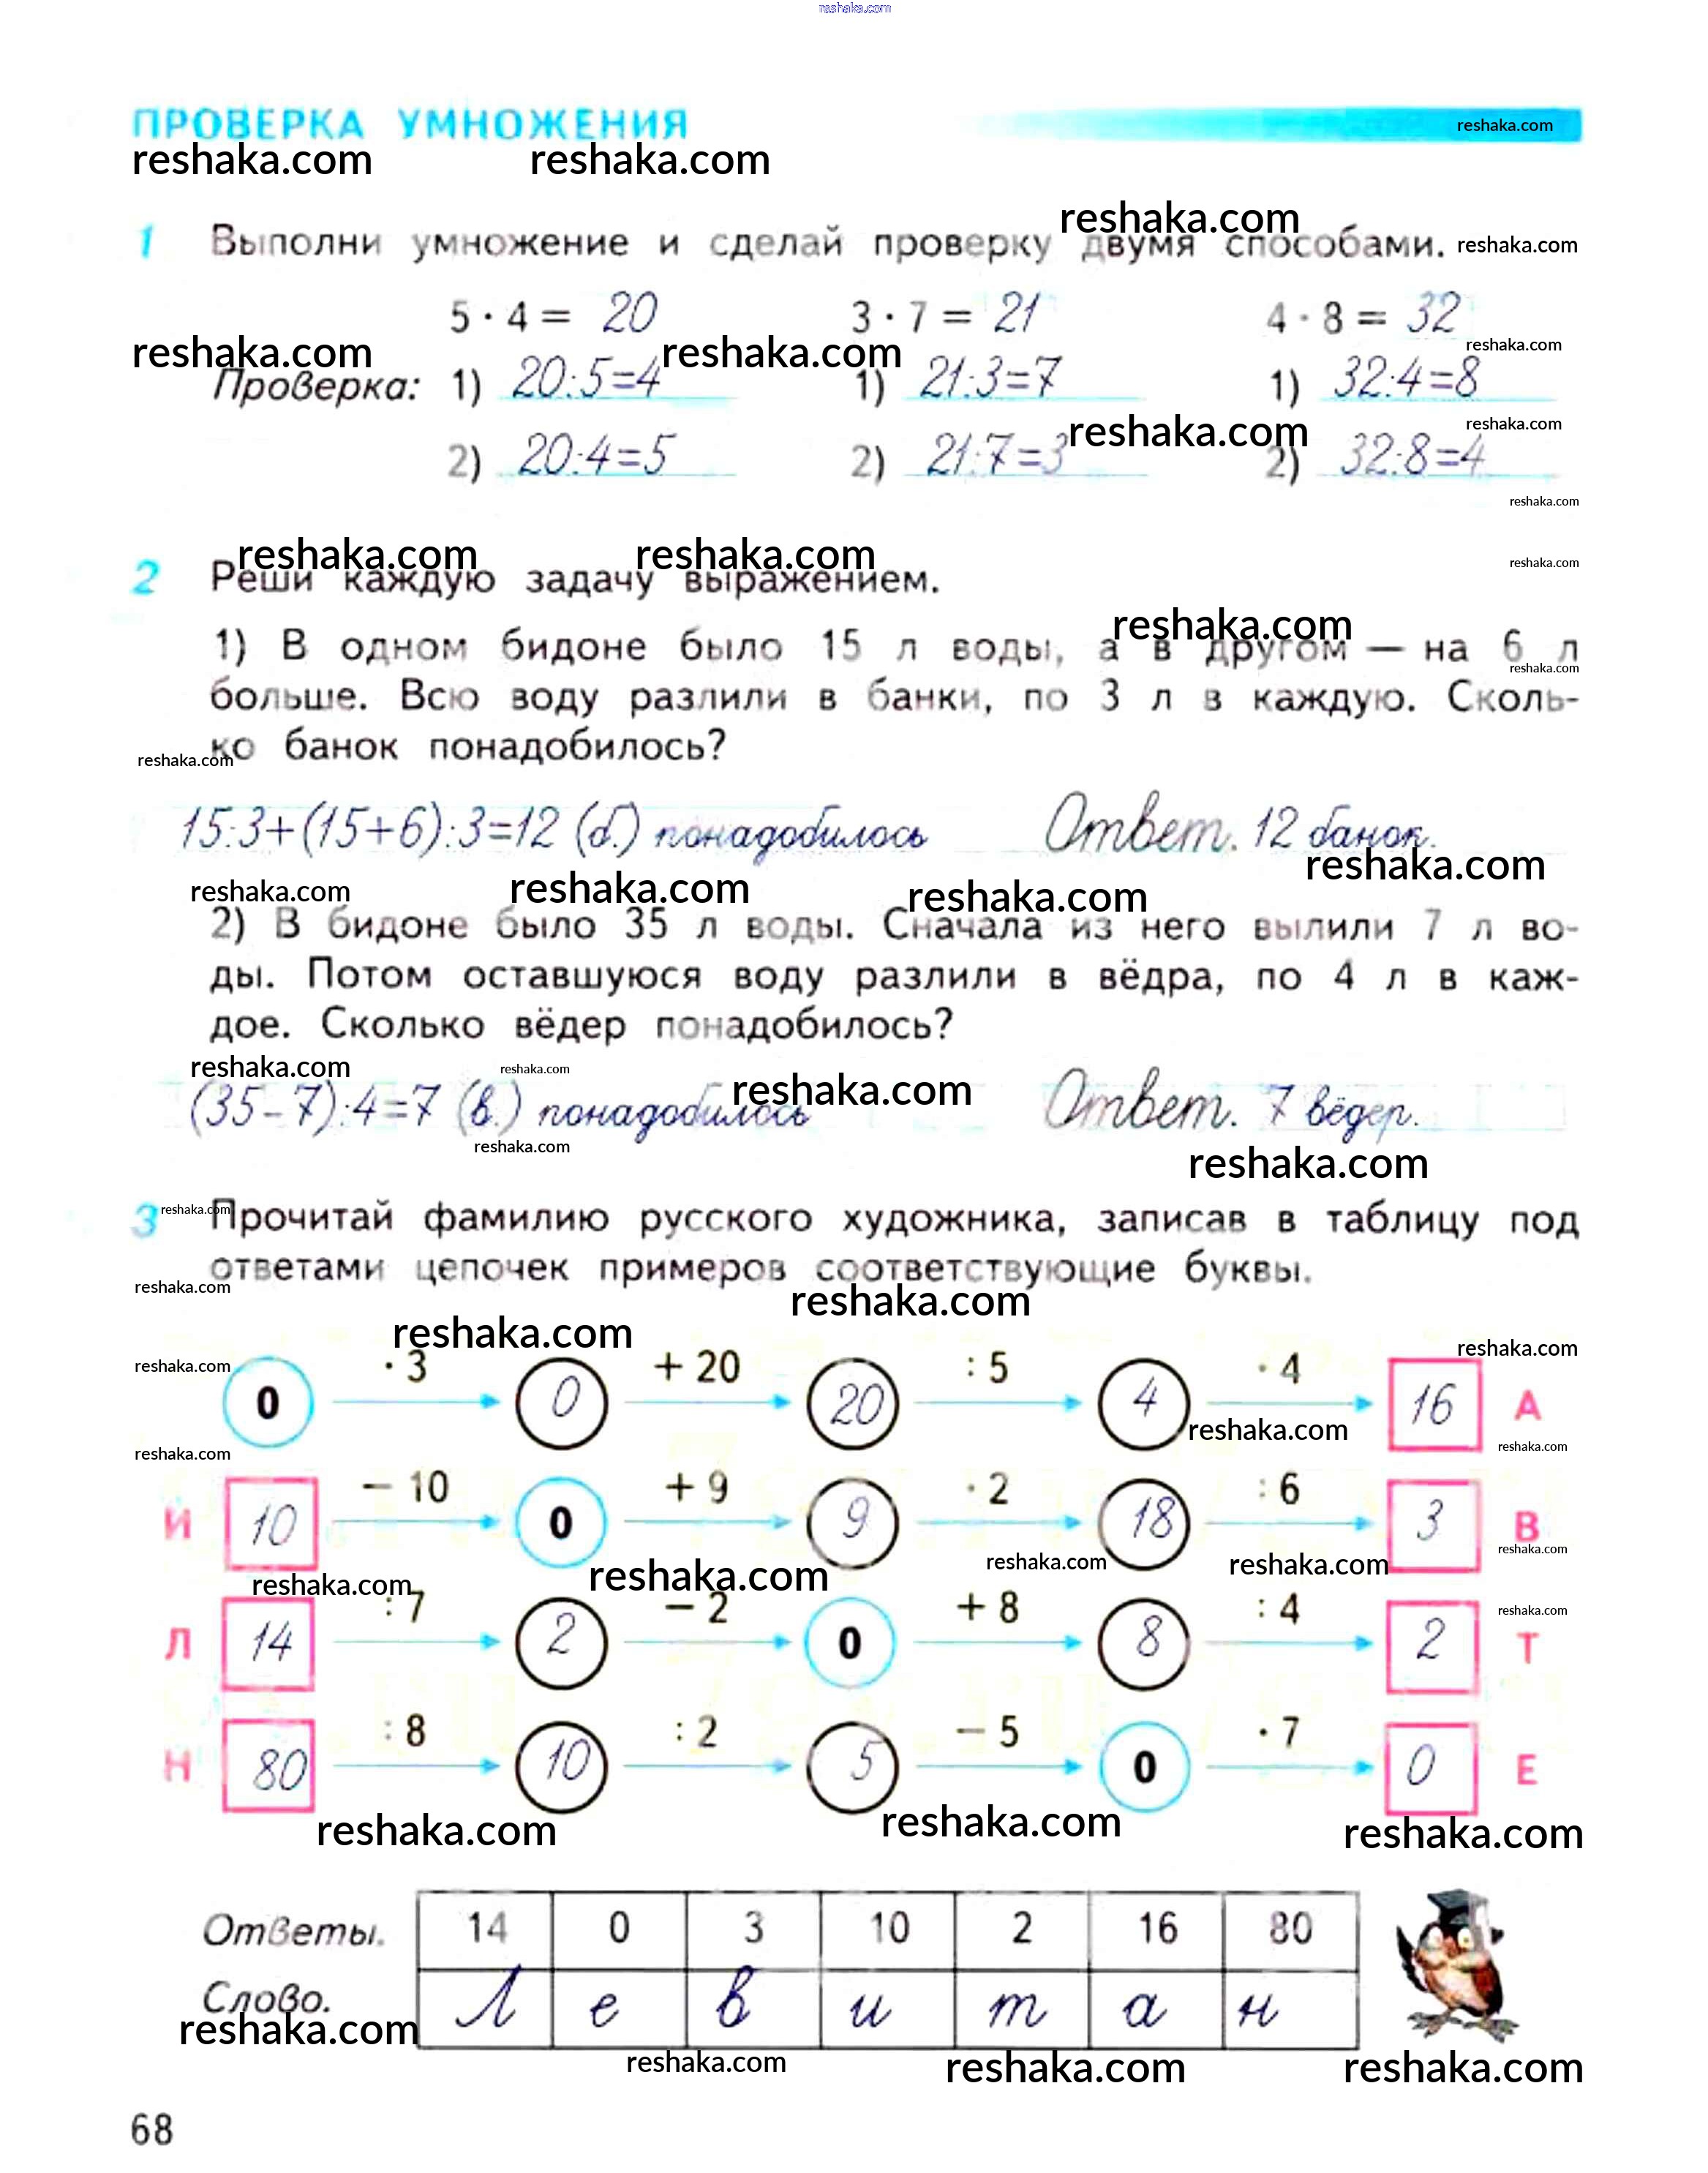 reshaka.com
ПРОВЕРКА УМНОЖЕНИЯ
reshaka.com
reshaka.com reshaka.com
reshaka.com
1 Выполни умножение и сделай проверку двумя способами. reshaka.com
5 · 4 = 20 3 · 7 = 21 4 · 8 = 32
reshaka.com reshaka.com reshaka.com
Проверка: 1) 20:5=4 1) 21:3=7 1) 32:4=8
reshaka.com reshaka.com
2) 20:4=5 2) 21:7=3 2) 32:8=4
reshaka.com
reshaka.com reshaka.com reshaka.com
2 Реши каждую задачу выражением.
reshaka.com
1) В одном бидоне было 15 л воды, а в другом — на 6 л
reshaka.com
больше. Всю воду разлили в банки, по 3 л в каждую. Сколь-
ко банок понадобилось?
reshaka.com
15:3+(15+6):3=12 (б.) понадобилось Ответ. 12 банок.
reshaka.com
reshaka.com reshaka.com reshaka.com
2) В бидоне было 35 л воды. Сначала из него вылили 7 л во-
ды. Потом оставшуюся воду разлили в вёдра, по 4 л в каж-
дое. Сколько вёдер понадобилось?
reshaka.com reshaka.com reshaka.com
(35-7):4=7 (в.) понадобилось Ответ. 7 вёдер.
reshaka.com reshaka.com
3 reshaka.com Прочитай фамилию русского художника, записав в таблицу под
ответами цепочек примеров соответствующие буквы.
reshaka.com reshaka.com
reshaka.com reshaka.com
reshaka.com · 3 + 20 : 5 · 4
0 0 20 4 16 А
reshaka.com reshaka.com
reshaka.com
− 10 + 9 · 2 : 6
Й 10 0 9 18 3 В
reshaka.com
reshaka.com reshaka.com reshaka.com reshaka.com
: 7 − 2 + 8 : 4
reshaka.com
Л 14 2 0 8 2 Т
: 8 : 2 − 5 · 7
Н 80 10 5 0 0 Е
reshaka.com reshaka.com reshaka.com
Ответы. 14 0 3 10 2 16 80
Слово. Л е в и т а н
reshaka.com
reshaka.com reshaka.com reshaka.com
68